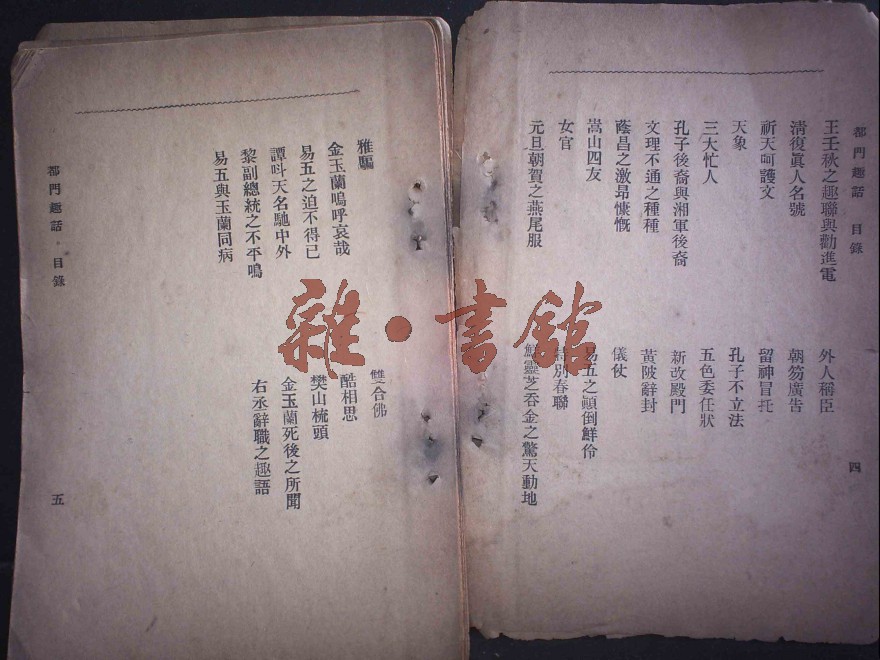 都門趣話　目錄
王壬秋之趣聯與勸進電
外人稱臣
清復眞人名號
朝笏廣吿
祈天呵護文
留神冒托
天象
孔子不立法
三大忙人
五色委任狀
孔子後裔與湘軍後裔
新改殿門
文理不通之種種
黃陂辭封
蔭昌之激昂慷慨
儀仗
嵩山四友
易五之顚倒鮮伶
女官
特別春聯
元旦朝賀之燕尾服
鮮靈芝吞金之驚天動地
四
雅騙
雙合佛
金玉蘭嗚呼哀哉
酷相思
易五之迫不得已
樊山梳頭
譚呌天名馳中外
金玉蘭死後之所聞
黎副總統之不平鳴
右丞辭職之趣語
易五與玉蘭同病
都門趣話　目錄
五
雜·書館